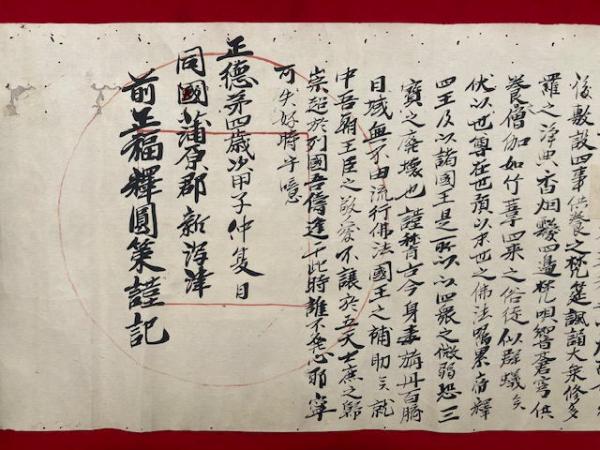 後敷設四事供養之梵筵諷誦大乗修多
羅之浄典香烟靉四邊梵唄響蒼穹供
養僧伽如竹葦四来之俗徒似群蟻矣
伏以世尊在世預以末世之佛法嘱累帝釋
四王及以諸國王是所以以四衆之微弱恐三
寳之廃壊也謹稽古今身毒旃丹百
日域無不由流行佛法國王之補助矣就
中吾朝王臣之敬愛不讓於五天士庶之歸
崇超於列國吾儕逢于此時誰不発心耶寧
可失好時乎噫
正德第四歳次甲子仲夏日
同國蒲原郡新泻津
前正福輝圓策謹記